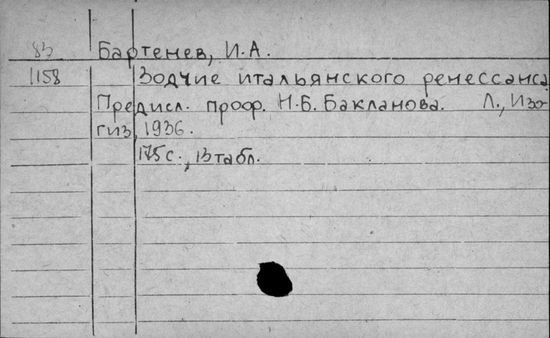 83 Бартенев, И.А.
1158 Зодчие итальянского ренессанса
Предисл. проф. Н.Б. Бакланова. Л., Изо-
гиз, 1936.
175 с., 13 табл.